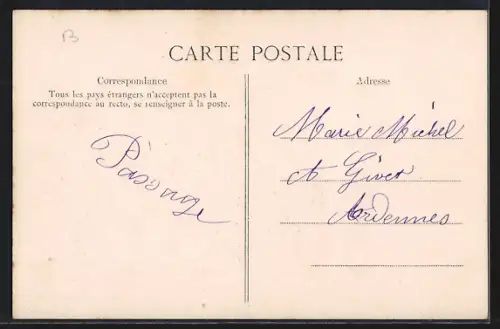 B
CARTE POSTALE
Correspondance
Tous les pays étrangers n'acceptent pas la
correspondance au recto, se renseigner à la poste.
Adresse
Marie Michel
A Givet
Ardennes